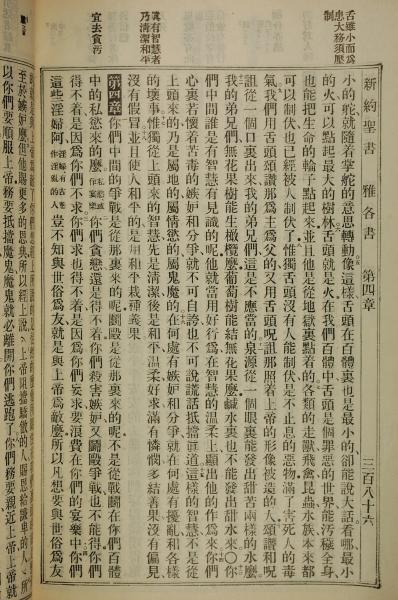 新約聖書 雅各書 第四章 三百八十六
舌雖小而爲
患大務須壓
制
小的舵就隨着掌舵的意思轉動像這樣舌頭在百體裏也是最小的卻能說大話看哪最小
的火可以點起最大的樹林舌頭就是火在我們百體中舌頭是個罪惡的世界能汚穢全身
也能把生命的輪子點起來並且他是從地獄裏點着的各類的走獸飛禽昆蟲水族本來都
可以制伏也已經被人制伏了惟獨舌頭沒有人能制伏是不止息的惡物滿了害死人的毒
氣我們用舌頭頌讚那爲主爲父的又用舌頭呪詛那照着上帝的形像被造的人頌讚和呪
詛從一個口裏出來我的弟兄們這是不應當的泉源從一個眼裏能發出甜苦兩樣的水麼
我的弟兄們無花果樹能生橄欖麼葡萄樹能結無花果麼鹹水裏也不能發出甜水來○你
眞有智慧者
乃清潔和平
們中間誰是有智慧有見識的呢他就當用好行爲在智慧的溫柔上顯出他的作爲來你們
心裏若懷着苦毒的嫉妒和分爭就不可自誇也不可說謊話抵擋眞道這樣的智慧不是從
上頭來的乃是屬地的屬情慾的屬魔鬼的在何處有嫉妒和分爭就在何處有擾亂和各樣
的壞事惟獨從上頭來的智慧先是清潔後是和平溫柔好求滿有憐憫多結善果沒有偏見
沒有假冒並且使人和平的是用和平栽種義果
宜去貪汚
第四章 你們中間的爭戰是從那裏來的呢鬪毆是從那裏來的呢不是從戰鬪在你們百體
中的私慾來的麼 你們貪戀還是得不着你們殺害嫉妒又鬪毆爭戰也不能得你們
得不着是因爲你們不求你們求也得不着是因爲你們妄求要浪費在你們的宴樂中你們
這些淫婦阿 豈不知與世俗爲友就是與上帝爲敵麼所以凡想要與世俗爲友
至於嫉妒麼但他賜更多的恩典所以經上說上帝阻擋驕傲的人賜恩給謙卑的人
以你們要順服上帝務要抵擋魔鬼魔鬼就必離開你們逃跑了你們務要親近上帝上帝就